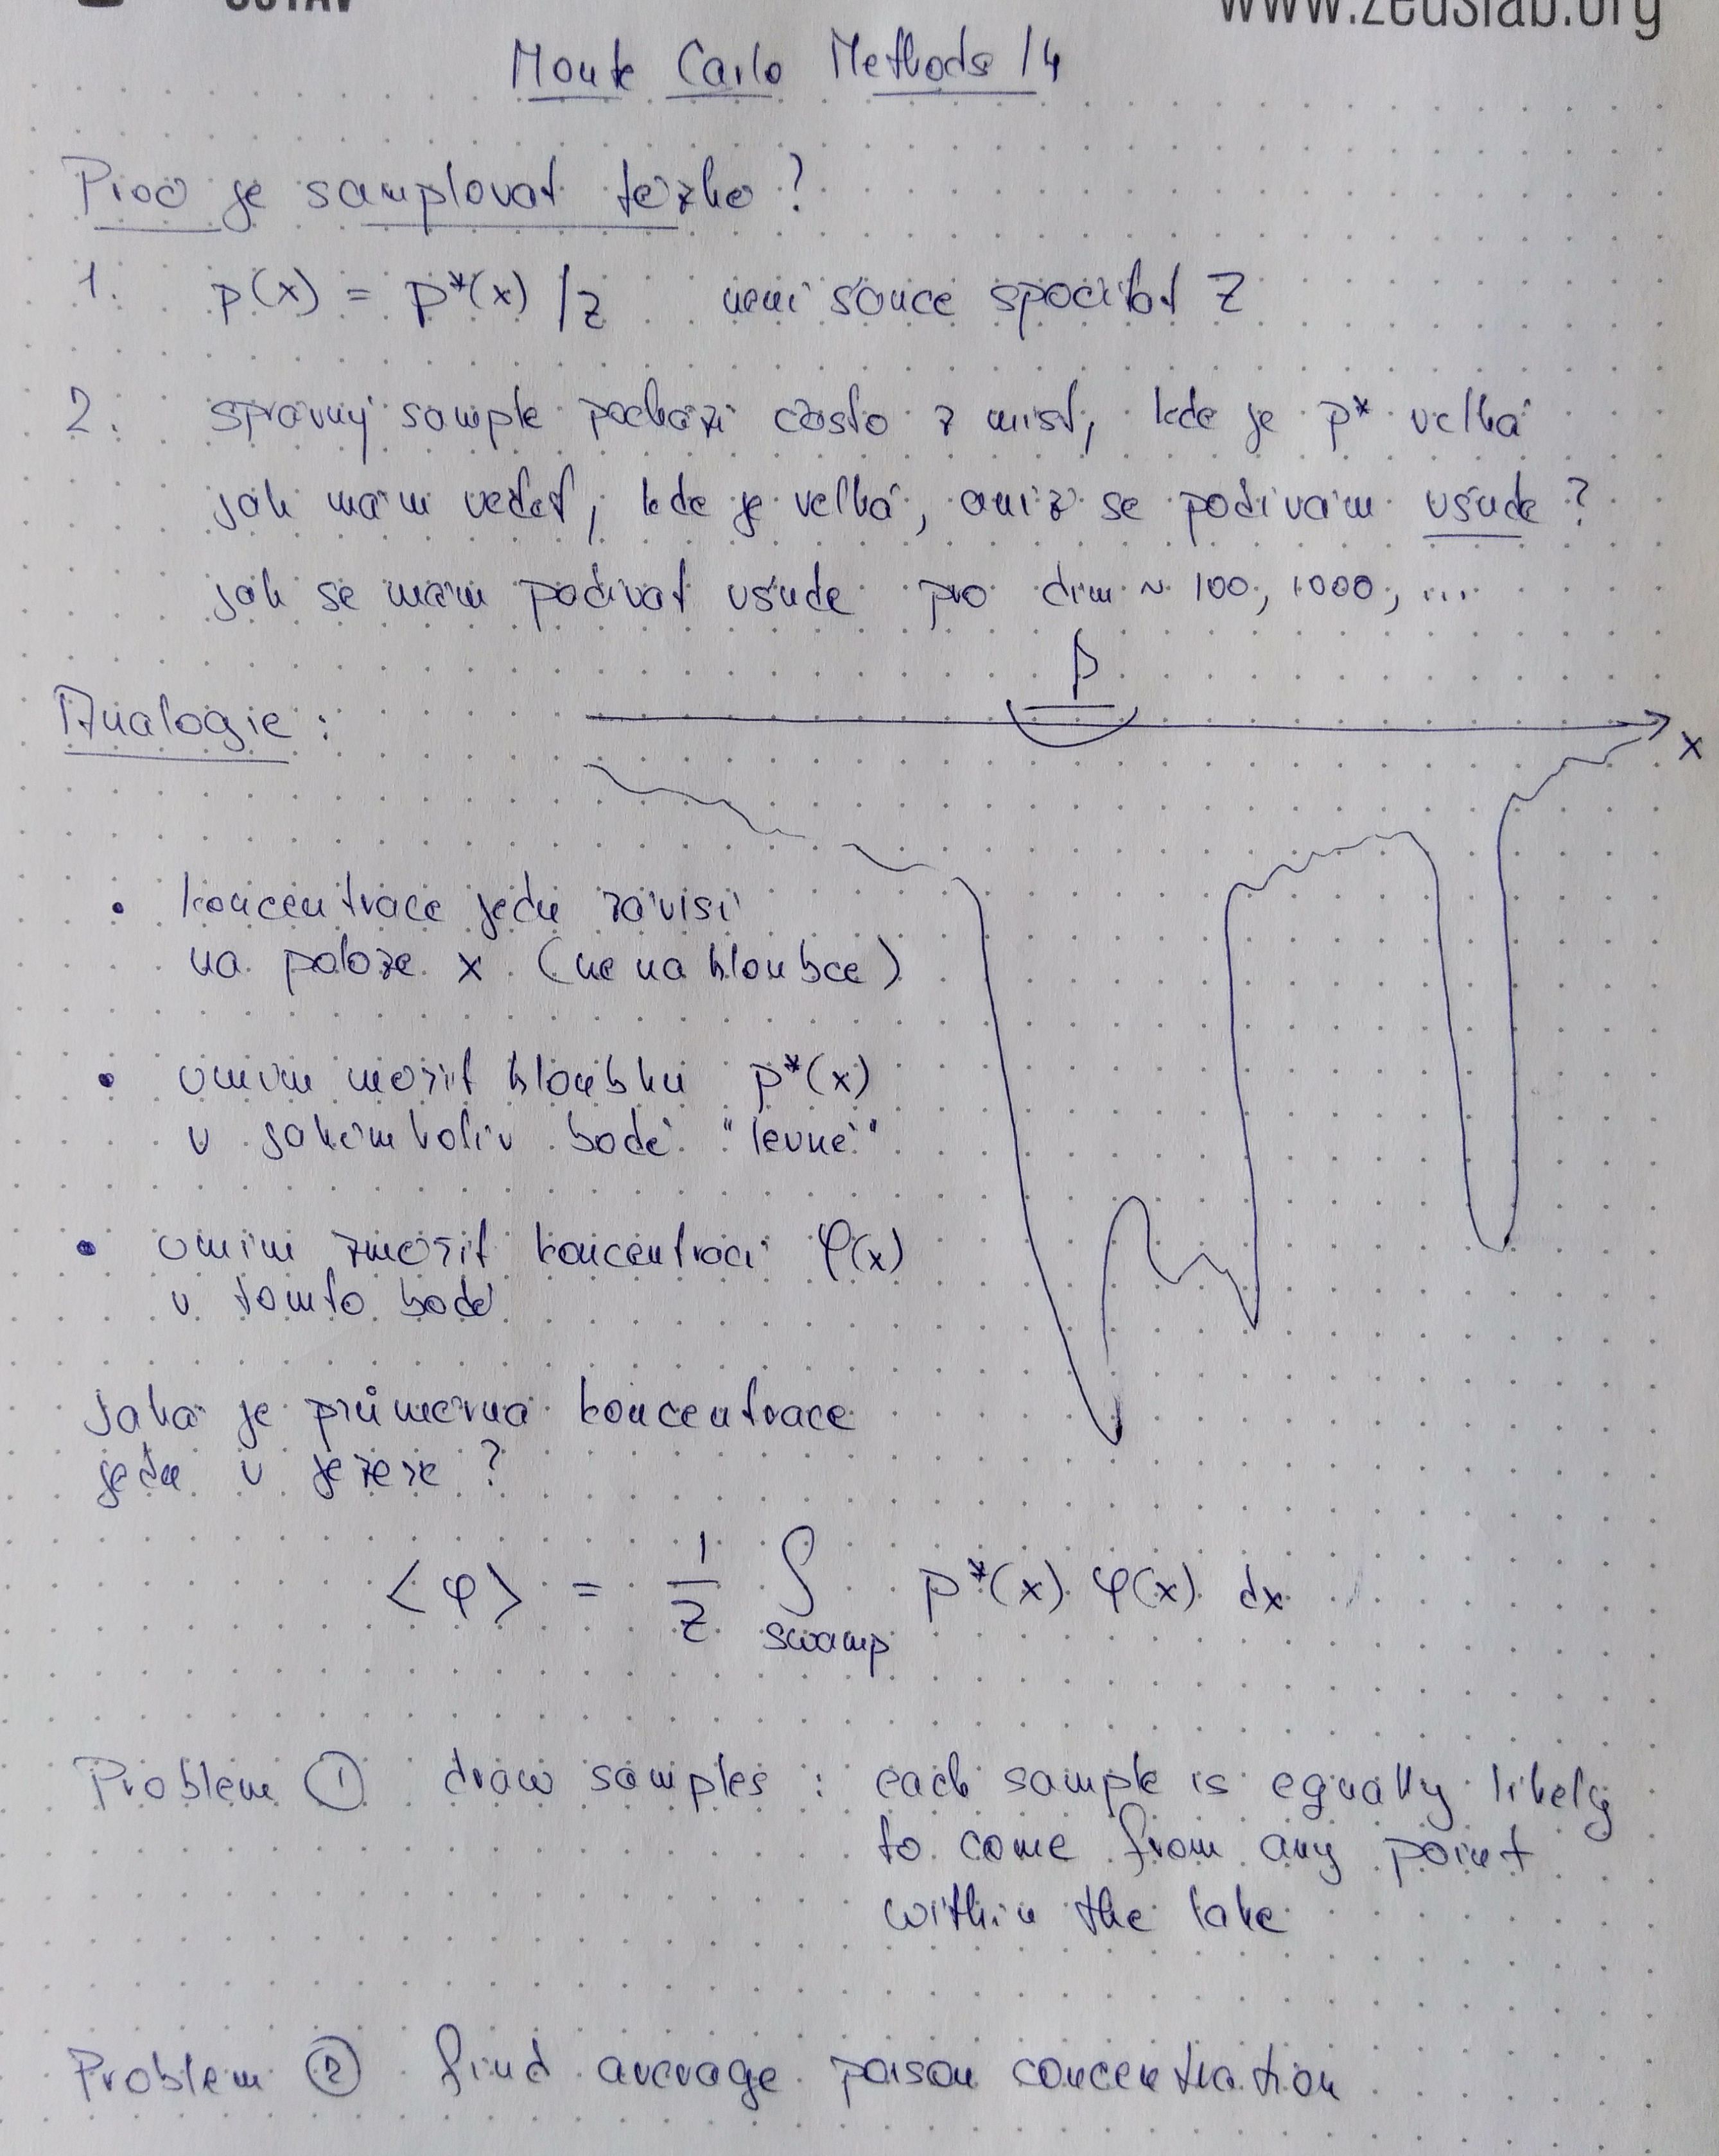 ÚSTAV
www.zeuslab.org
Monte Carlo Methods /4
Proč je samplovat těžké?
1. p(x) = p*(x) /Z není snadné spočítat Z
2. správný sample pochází často z míst, kde je p* velká
jak mám vědět, kde je velká, aniž se podívám všude?
jak se mám podívat všude pro dim ~ 100, 1000, ...
x
Analogie:
• koncentrace jedu závisí
na poloze x (ne na hloubce)
• umím měřit hloubku p*(x)
v jakémkoliv bodě "levně"
• umím změřit koncentraci φ(x)
v tomto bodě
Jaká je průměrná koncentrace
jedu v jezeře?
<φ> = 1/Z ∫ swamp p*(x) φ(x) dx
Problem ① draw samples : each sample is equally likely
to come from any point
within the lake
Problem ② find average poison concentration